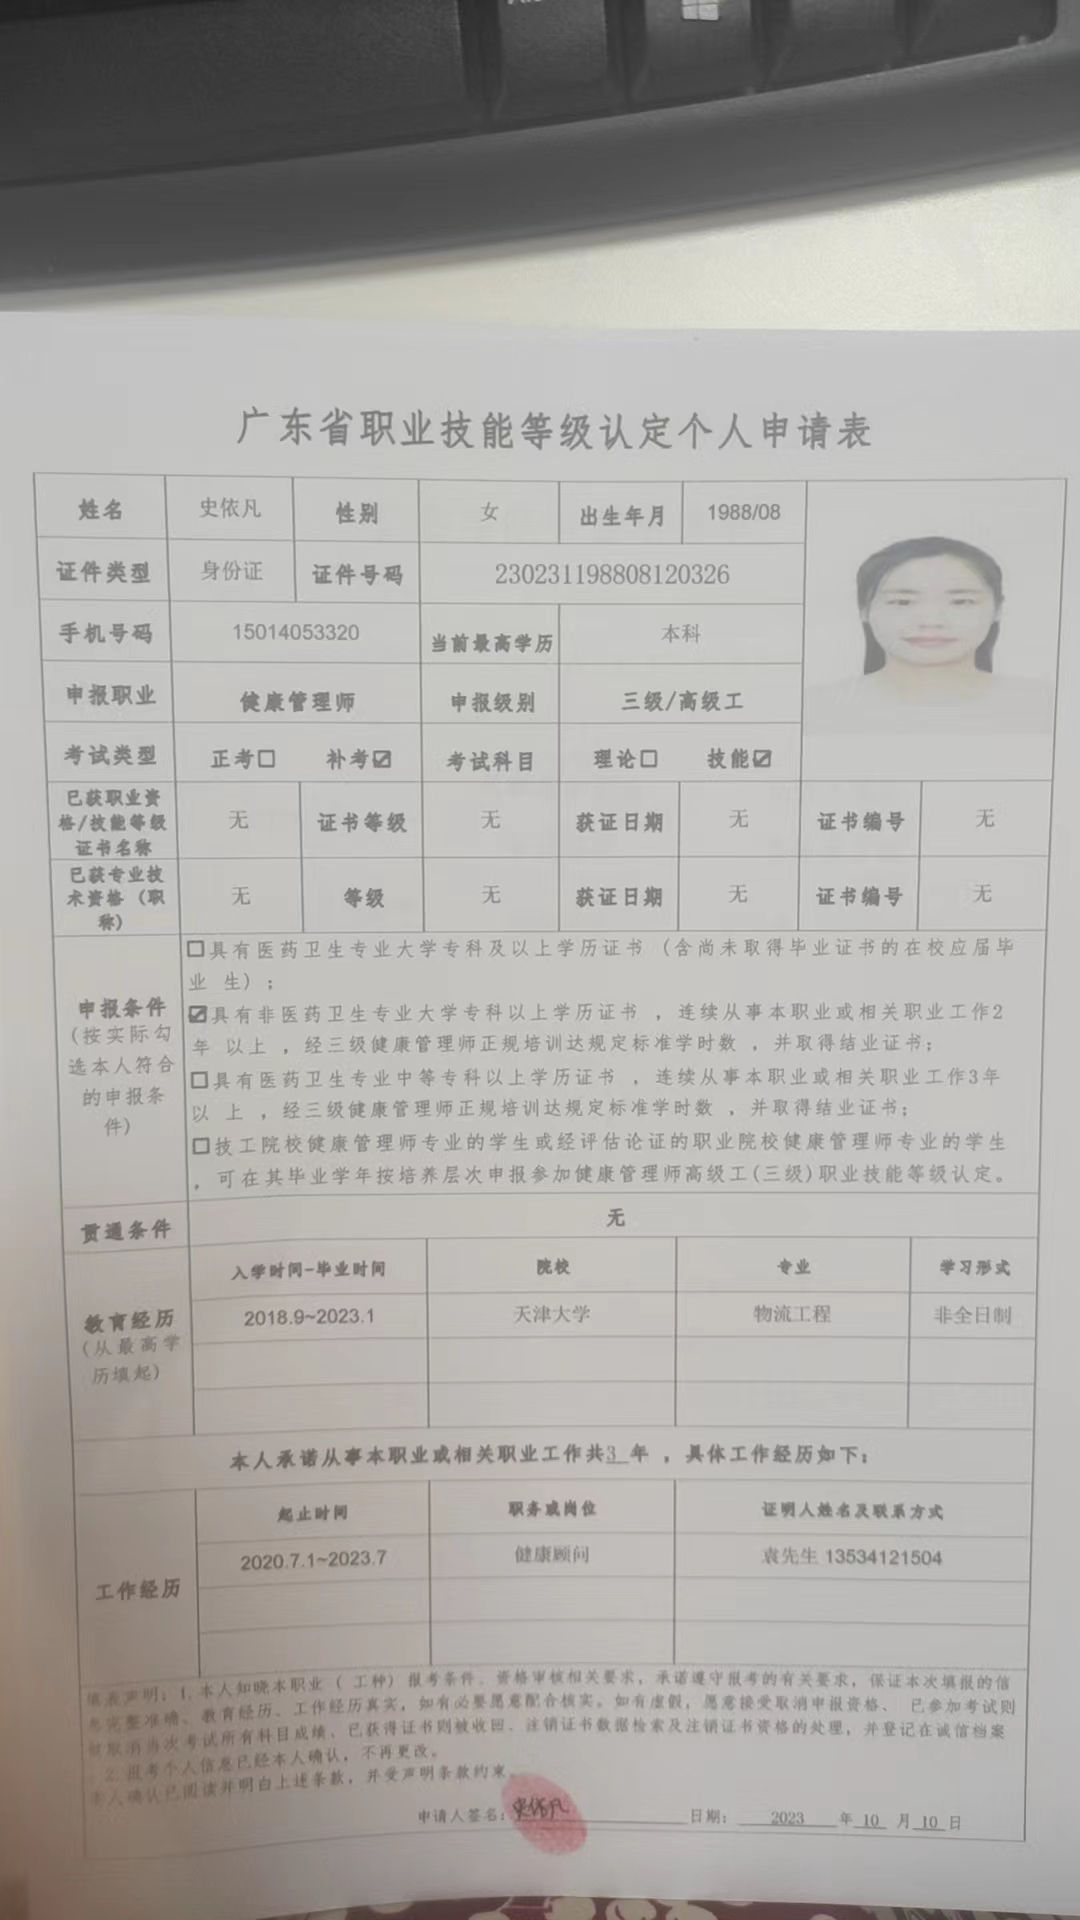 广东省职业技能等级认定个人申请表
姓名 史依凡 性别 女 出生年月 1988/08
证件类型 身份证 证件号码 230231198808120326
手机号码 15014053320 当前最高学历 本科
申报职业 健康管理师 申报级别 三级/高级工
考试类型 正考☐ 补考☑ 考试科目 理论☐ 技能☑
已获职业资
格/技能等级 无 证书等级 无 获证日期 无 证书编号 无
证书名称
已获专业技
术资格（职 无 等级 无 获证日期 无 证书编号 无
称）
申报条件
（按实际勾
选本人符合
的申报条
件）
☐具有医药卫生专业大学专科及以上学历证书（含尚未取得毕业证书的在校应届毕
业 生）；
☑具有非医药卫生专业大学专科以上学历证书 ，连续从事本职业或相关职业工作2
年 以上 ，经三级健康管理师正规培训达规定标准学时数 ，并取得结业证书；
☐具有医药卫生专业中等专科以上学历证书 ，连续从事本职业或相关职业工作3年
以 上 ，经三级健康管理师正规培训达规定标准学时数 ，并取得结业证书；
☐技工院校健康管理师专业的学生或经评估论证的职业院校健康管理师专业的学生
，可在其毕业学年按培养层次申报参加健康管理师高级工(三级)职业技能等级认定。
贯通条件 无
教育经历
（从最高学
历填起）
入学时间-毕业时间 院校 专业 学习形式
2018.9~2023.1 天津大学 物流工程 非全日制
本人承诺从事本职业或相关职业工作共3年 ，具体工作经历如下：
工作经历
起止时间 职务或岗位 证明人姓名及联系方式
2020.7.1~2023.7 健康顾问 袁先生 13534121504
填表声明：1.本人知晓本职业（ 工种）报考条件、资格审核相关要求，承诺遵守报考的有关要求，保证本次填报的信
息完整准确、教育经历、工作经历真实，如有必要愿意配合核实。如有虚假，愿意接受取消申报资格、 已参加考试则
被取消当次考试所有科目成绩、已获得证书则被收回、注销证书数据检索及注销证书资格的处理，并登记在诚信档案
2.报考个人信息已经本人确认，不再更改。
本人确认已阅读并明白上述条款，并受声明条款约束。
申请人签名：史依凡 日期： 2023 年 10 月 10 日